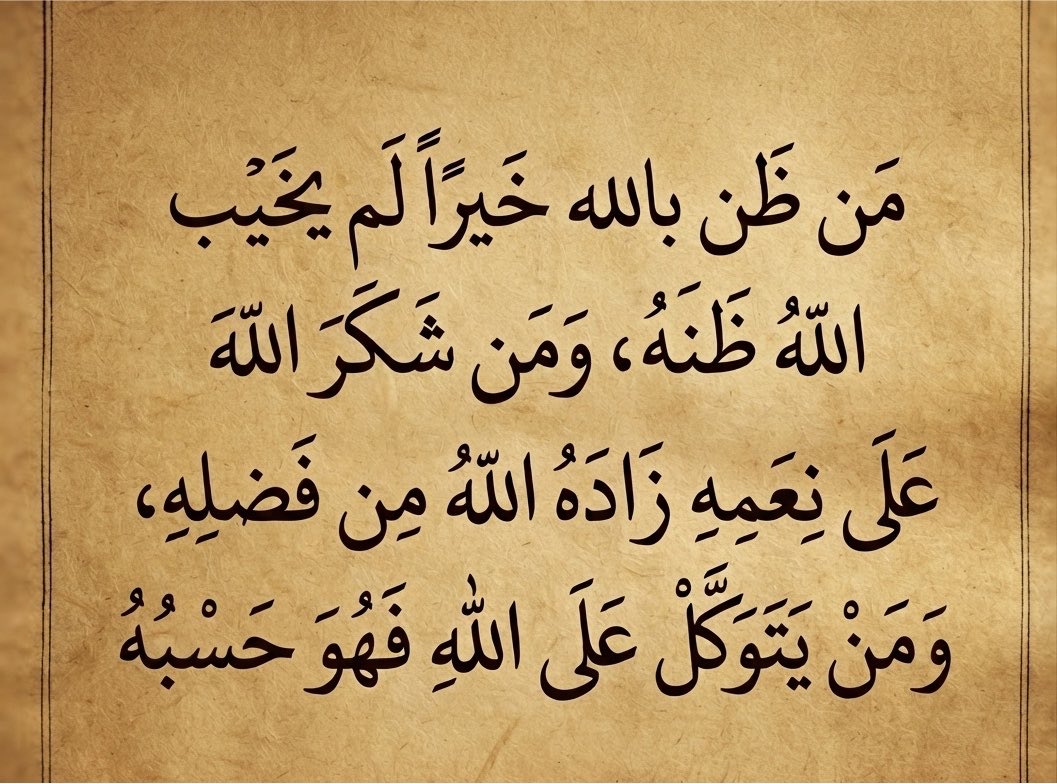 مَن ظَن بالله خَيرًاً لَم يخَيْب
اللّهُ ظَنَهُ، وَمَن شَكَرَ اللّهَ
عَلَى نِعَمِهِ زَادَهُ اللّهُ مِن فَضلِهِ،
وَمَنْ يَتَوَكَّلْ عَلَى اللهِ فَهُوَ حَسْبُهُ